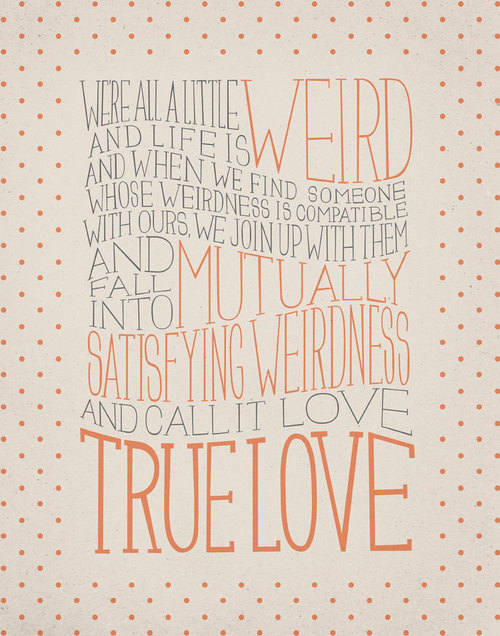 WE'RE ALL A LITTLE WEIRD
AND LIFE IS
AND WHEN WE FIND SOMEONE
WHOSE WEIRDNESS IS COMPATIBLE
WITH OURS, WE JOIN UP WITH THEM
AND
FALL
INTO
MUTUALLY
SATISFYING WEIRDNESS
AND CALL IT LOVE
TRUE LOVE